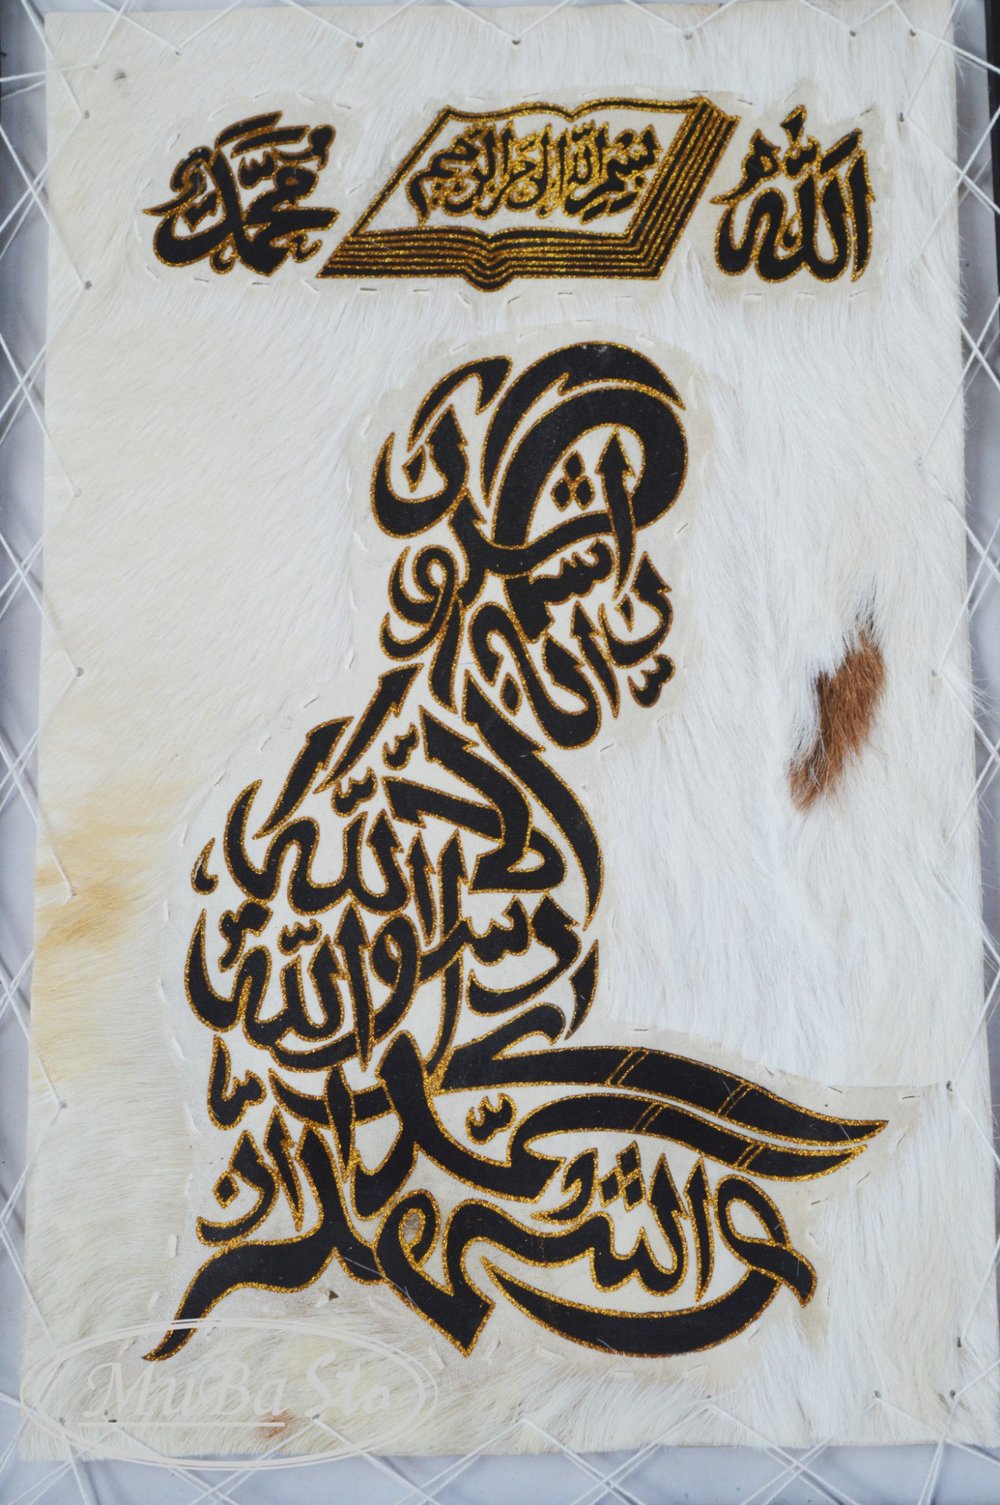 الله بسم الله الرحمن الرحيم محمد
اشهد ان لا اله الا الله
واشهد ان محمدا رسول الله